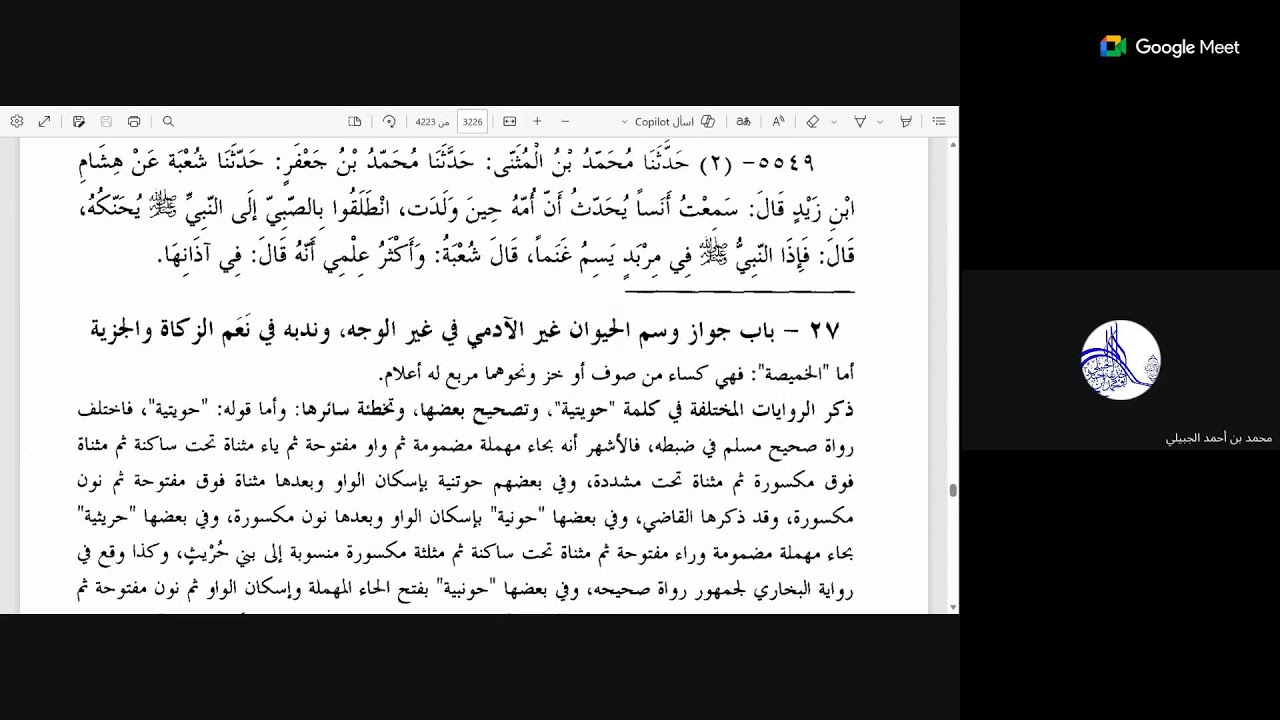 Google Meet
3226
من 4223
اسأل Copilot
٥٥٤٩- (٢) حَدَّثَنَا مُحَمَّدُ بْنُ الْمُثَنّى: حَدَّثَنَا مُحَمّدُ بْنُ جَعْفَرٍ: حَدّثَنَا شُعْبَة عَنْ هِشَامِ
ابْنِ زَيْدٍ قَالَ: سَمِعْتُ أَنَساً يُحَدّثُ أَنّ أُمّهُ حِينَ وَلَدَت، انْطَلَقُوا بِالصّبِيّ إلَى النّبِيِّ ﷺ يُحَنّكُهُ،
قَالَ: فَإِذَا النّبِيُّ ﷺ فِي مِرْبَدٍ يَسِمُ غَنَماً، قَالَ شُعْبَةُ: وَأَكْثَرُ عِلْمِي أَنّهُ قَالَ: فِي آذَانِهَا.
٢٧ – باب جواز وسم الحيوان غير الآدمي في غير الوجه، وندبه في نَعَم الزكاة والجزية
أما "الخميصة": فهي كساء من صوف أو خز ونحوهما مربع له أعلام.
ذكر الروايات المختلفة في كلمة "حويتية"، وتصحيح بعضها، وتخطئة سائرها: وأما قوله: "حويتية"، فاختلف
رواة صحيح مسلم في ضبطه، فالأشهر أنه بحاء مهملة مضمومة ثم واو مفتوحة ثم ياء مثناة تحت ساكنة ثم مثناة
فوق مكسورة ثم مثناة تحت مشددة، وفي بعضهم حوتنية بإسكان الواو وبعدها مثناة فوق مفتوحة ثم نون
مكسورة، وقد ذكرها القاضي، وفي بعضها "حونية" بإسكان الواو وبعدها نون مكسورة، وفي بعضها "حريثية"
بحاء مهملة مضمومة وراء مفتوحة ثم مثناة تحت ساكنة ثم مثلثة مكسورة منسوبة إلى بني حُرْيثٍ، وكذا وقع في
رواية البخاري لجمهور رواة صحيحه، وفي بعضها "حونبية" بفتح الحاء المهملة وإسكان الواو ثم نون مفتوحة ثم
محمد بن أحمد الجبيلي